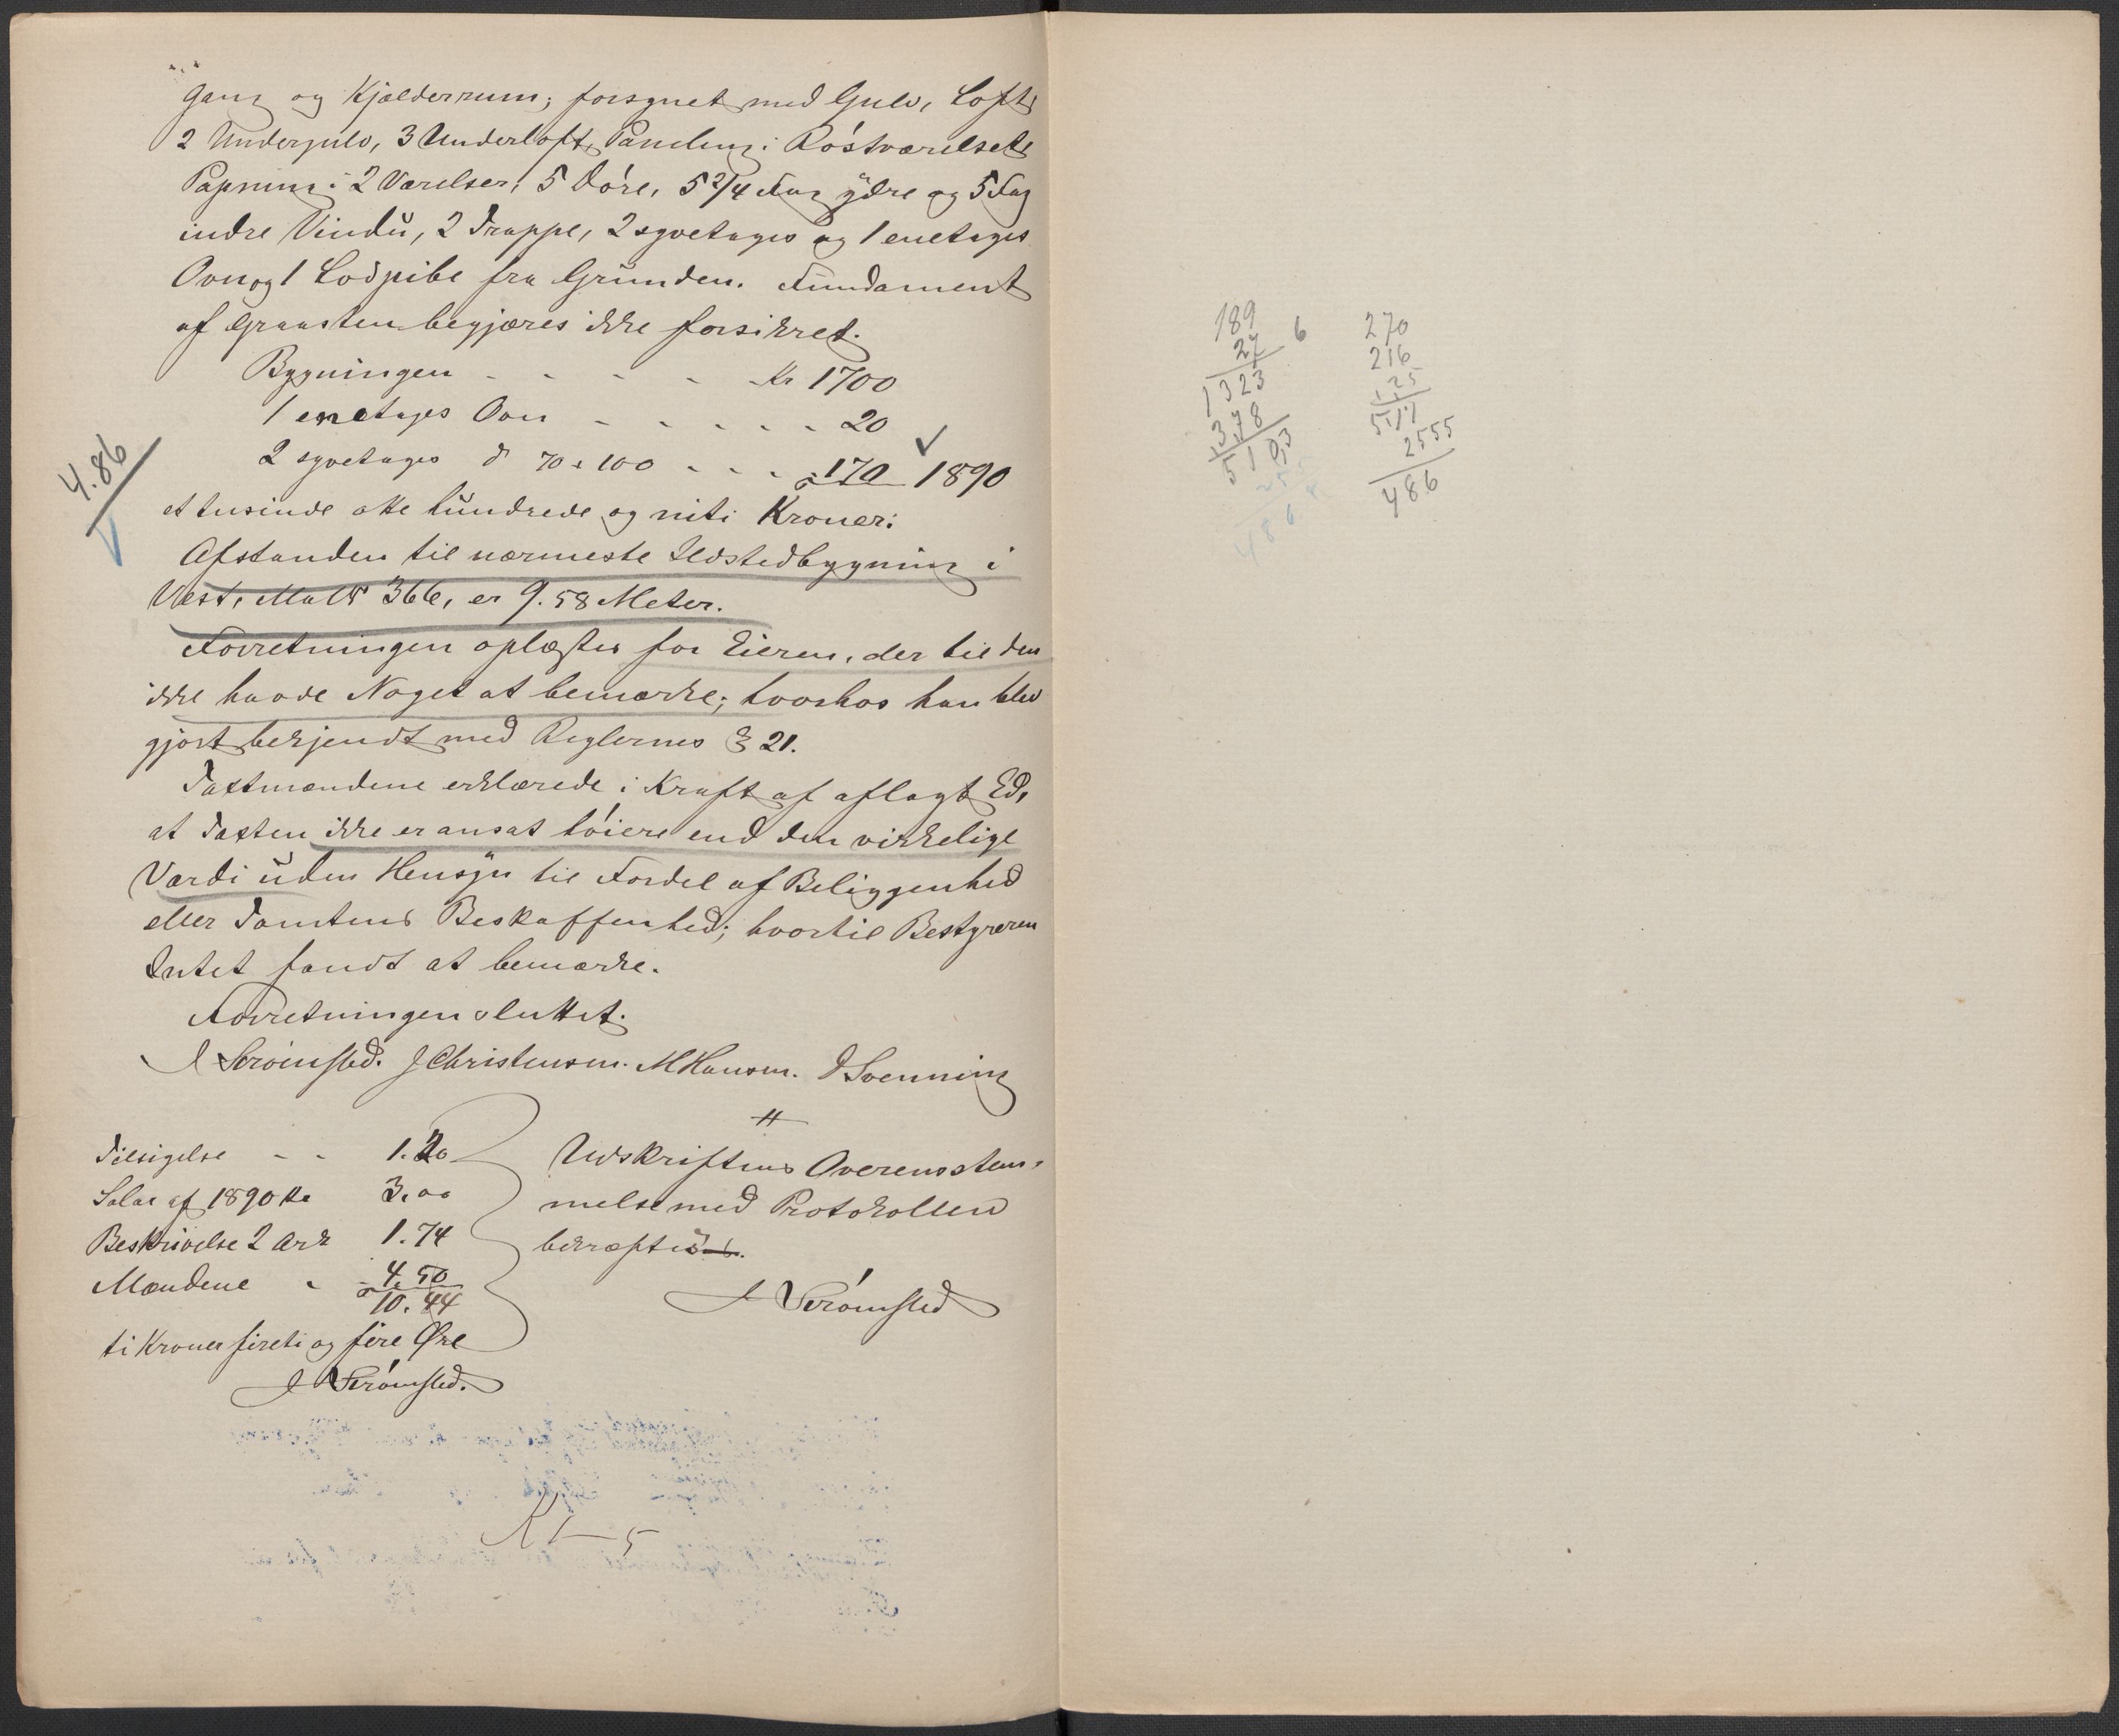 Gang og Kjælderrum; forsynet med Gulv, Loft,
2 Undergulv, 3 Underloft, Paneling i Röstværelset,
Papning i 2 Værelser, 5 Döre, 5 2/4 Fag ydre og 5 Fag
indre Vindu, 2 Trappe, 2 syvetages og 1 enetages
Ovn og 1 Lodpibe fra Grunden. Fundament
af Graasten begjæres ikke forsikret.
Bygningen - - - - Kr 1700
1 enetages Ovn - - - - - 20
2 syvetages à 70 + 100 - - - 170 1890
4.86
et tusinde otte hundrede og niti Kroner:
Afstanden til nærmeste Ildstedbygning i
Vest, Ma No 366, er 9.58 Meter.
Forretningen oplæstes for Eieren, der til den
ikke havde Noget at bemærke; hvorhos han blev
gjort bekjendt med Reglernes § 21.
Taxtmændene erklærede i Kraft af aflagt Ed,
at Taxten ikke er ansat höiere end den virkelige
Værdi uden Hensyn til Fordel af Beliggenhed
eller Tomtens Beskaffenhed; hvortil Bestyreren
Intet fandt at bemærke.
Forretningen sluttet.
J Strömsted. J Christensen. M Hansen. D Svenning
Tilsigelse - - 1.20
Salær af 1890 Kr 3.00
Beskrivelse 2 Ark 1.74
Mændene - 4.50
10.44
ti Kroner fireti og fire Øre
J Strömsted.
Udskriftens Overensstem-
melse med Protokollen
bekræftes
J Strömsted
189
27 6
1323
378
5103
486
270
216
25
511
2555
486